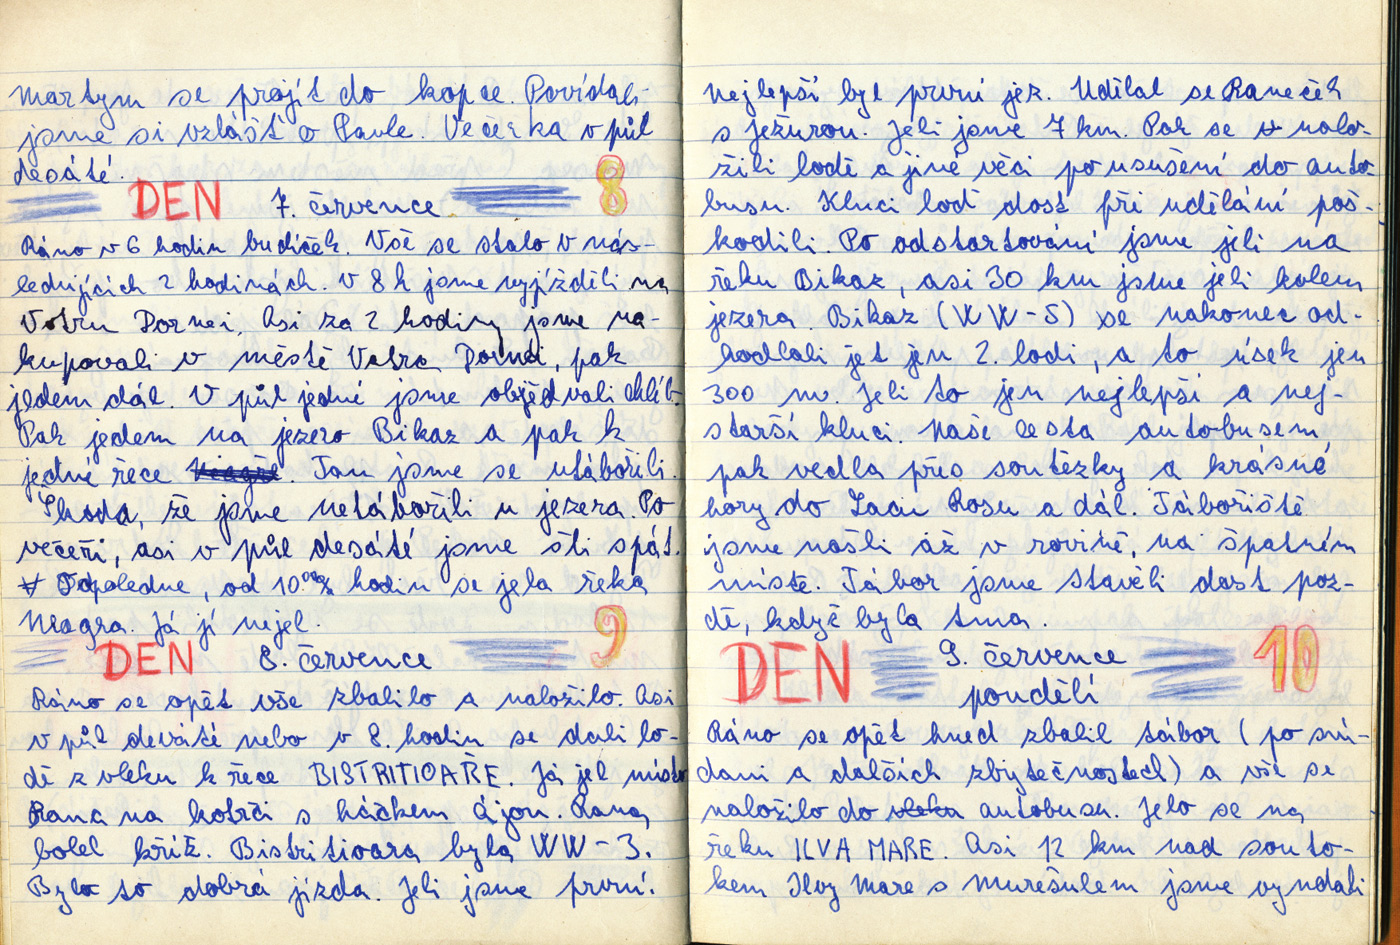 Martym se projít do kopce. Povídali
jsme si vzlášť o Pavle. Večerka v půl
desáté.
DEN 7. července 8
Ráno v 6 hodin budíček. Vše se stalo v nás-
ledujících 2 hodinách. V 8 h jsme vyjížděli na
Vatru Dornei. Asi za 2 hodiny jsme na-
kupovali v městě Vatra Dornei, pak
jedem dál. V půl jedné jsme objědvali chléb.
Pak jedem na jezero Bikaz a pak k
jedné řece Neagře. Tam jsme se utábořili.
Škoda, že jsme netábořili u jezera. Po
večeři, asi v půl desáté jsme šli spát.
Odpoledne, od 10 hodin se jela řeka
Neagra. Já jí nejel.
DEN 8. července 9
Ráno se opět vše zbalilo a naložilo. Asi
v půl deváté nebo v 8. hodin se dali lo-
dě z vleku k řece BISTRITIOAŘE. Já jel místo
Rana na kotrči s háčkem Qijon. Rana
bolel kříž. Bistritioara byla WW-3.
Bylo to dobrá jízda. Jeli jsme první.
Nejlepší byl první jez. Udělal se Raneček
s Ježurou. Jeli jsme 7 km. Pak se nalo-
žili lodě a jiné věci po usušení do auto-
busu. Kluci loď dost při udělání poš-
kodili. Po odstartování jsme jeli na
řeku Bikaz, asi 30 km jsme jeli kolem
jezera. Bikaz (WW-5) se nakonec od-
hodlali jet jen 2 lodi, a to úsek jen
300 m. Jeli to jen nejlepší a nej-
starší kluci. Naše cesta autobusem
pak vedla přes soutězky a krasné
hory do Lacu Rosu a dál. Tábořiště
jsme našli až v rovině, na špatném
místě. Tábor jsme stavěli dost poz-
dě, když byla tma.
DEN 9. července 10
pondělí
Ráno se opět hned zbalil tábor (po sní-
dani a dalších zbytečnostech) a vše se
naložilo do vleku autobusu. Jelo se na
řeku ILVA MARE. Asi 12 km nad souto-
kem Ilvy Mare s Murešulem jsme vyndali